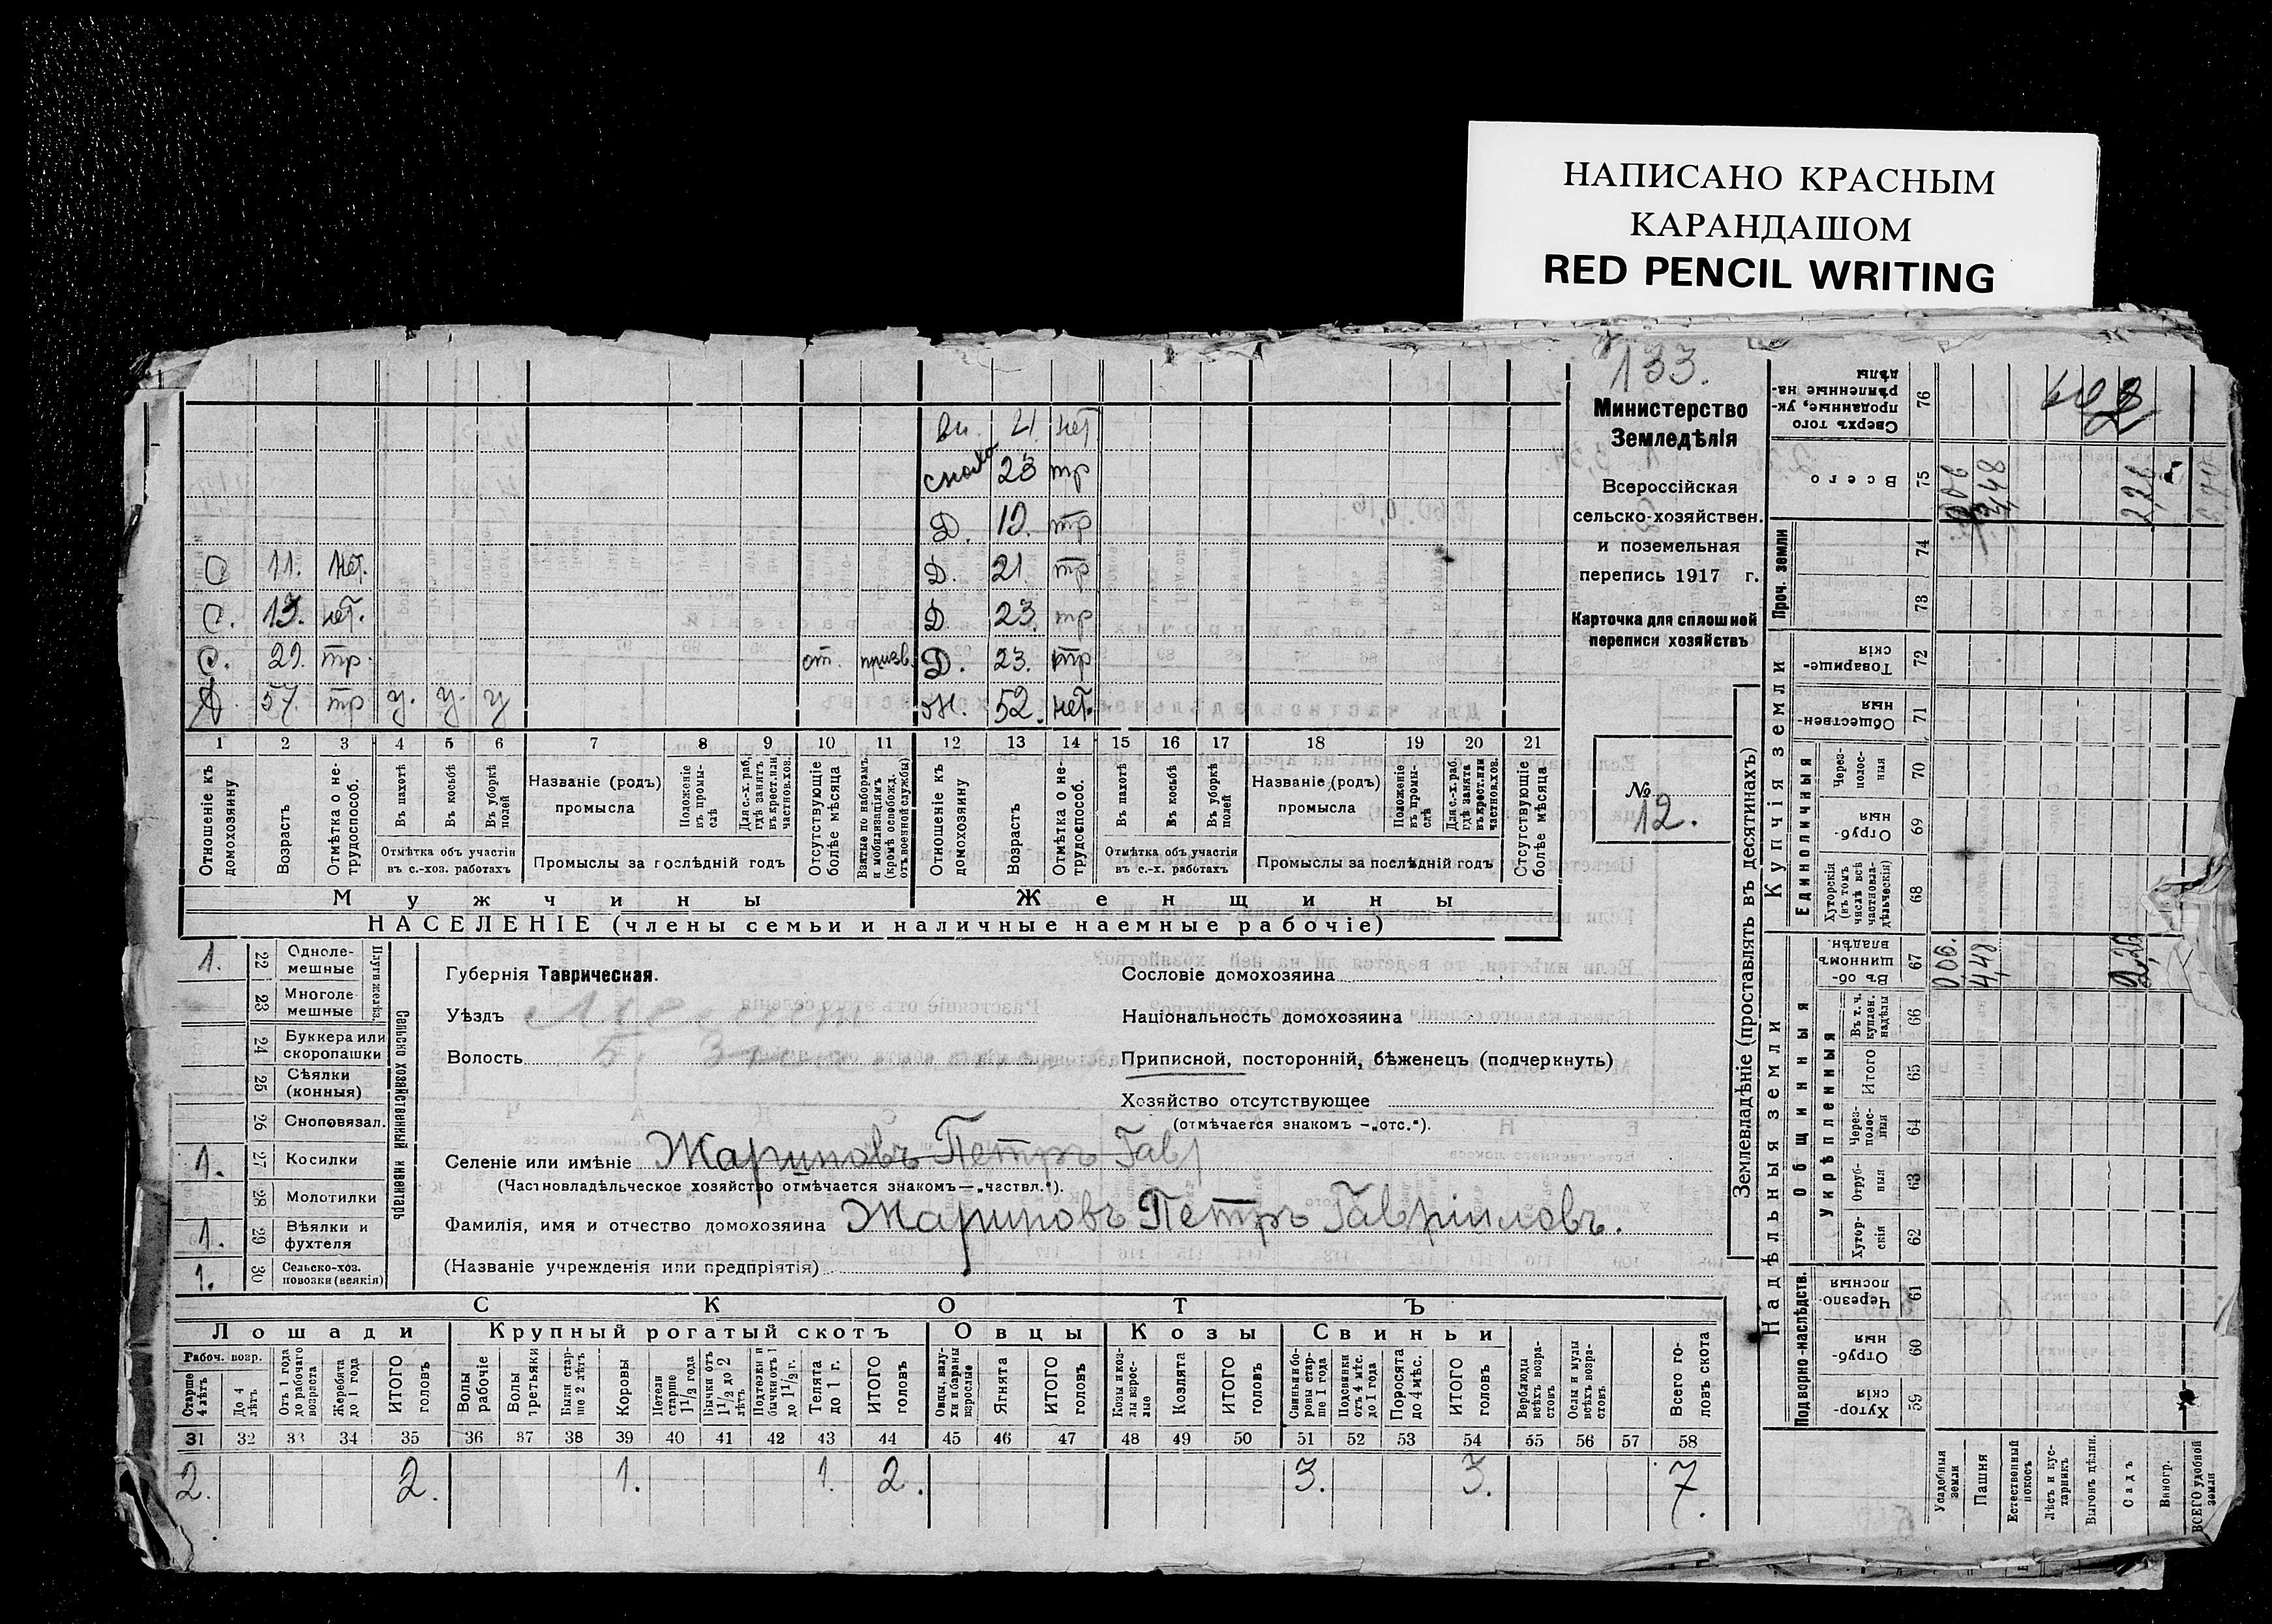 НАПИСАНО КРАСНЫМ
КАРАНДАШОМ
RED PENCIL WRITING
133.
Министерство
Земледѣлія
Всероссійская
сельско-хозяйствен.
и поземельная
перепись 1917 г.
Карточка для сплошной
переписи хозяйствъ
№ 12.
21. нет
сноха 23 тр
Д. 19. тр
С 11. нет. Д. 21. тр
С. 13. нет. Д. 23. тр
С. 29. тр. от. призв. Д. 23. тр
57. тр у. у. у Ж. 52. нет.
1 2 3 4 5 6 7 8 9 10 11 12 13 14 15 16 17 18 19 20 21
Отношеніе къ домохозяину
Возрастъ
Отмѣтка о нетрудоспособ.
Въ пахотѣ
Въ косьбѣ
Въ уборкѣ полей
Отмѣтка объ участіи въ с.-хоз. работахъ
Названіе (родъ) промысла
Положеніе въ промыслѣ
Для с.-х. раб., гдѣ занятъ въ крест. или частнов. хоз.
Промыслы за послѣдній годъ
Отсутствующіе болѣе мѣсяца
Взятые по наборамъ и мобилизаціямъ (кромѣ освобожд. отъ военной службы)
Отношеніе къ домохозяину
Возрастъ
Отмѣтка о нетрудоспособ.
Въ пахотѣ
Въ косьбѣ
Въ уборкѣ полей
Отмѣтка объ участіи въ с.-х. работахъ
Названіе (родъ) промысла
Положеніе въ промыслѣ
Для с.-х. раб., гдѣ занята въ крест. или частнов. хоз.
Промыслы за послѣдній годъ
Отсутствующіе болѣе мѣсяца
Мужчины Женщины
НАСЕЛЕНІЕ (члены семьи и наличные наемные рабочіе)
1. 22 Однолемешные
23 Многолемешные
Плуги желѣз.
24 Буккера или скоропашки
25 Сѣялки (конныя)
26 Сноповязал.
1. 27 Косилки
28 Молотилки
1. 29 Вѣялки и фухтеля
1. 30 Сельско-хоз. повозки (всякія)
Сельско хозяйственный инвентарь
Губернія Таврическая.
Уѣздъ
Волость
Сословіе домохозяина
Національность домохозяина
Приписной, посторонній, бѣженецъ (подчеркнуть)
Хозяйство отсутствующее
(отмѣчается знакомъ -„отс.“).
Селеніе или имѣніе Жариновъ Петръ Гав
(Частновладѣльческое хозяйство отмѣчается знакомъ—„частвл.“).
Фамилія, имя и отчество домохозяина Жариновъ Петръ Гавріиловъ.
(Названіе учрежденія или предпріятія)
СКОТЪ
Лошади Крупный рогатый скотъ Овцы Козы Свиньи
Рабоч. возр.
Старше 4 лѣтъ
До 4 лѣтъ
Отъ 1 года до рабочаго возраста
Жеребята до 1 года
ИТОГО головъ
Волы рабочіе
Волы третьяки
Быки старше 2 лѣтъ
Коровы
Нетели старше 1 1/2 года
Бычки отъ 1 1/2 до 2 лѣтъ
Подтелки и бычки отъ 1 до 1 1/2 г.
Телята до 1 г.
ИТОГО головъ
Овцы, валухи и бараны взрослые
Ягнята
ИТОГО головъ
Козы и козлы взрослые
Козлята
ИТОГО головъ
Свиньи и боровы старше 1 года
Подсвинки отъ 4 мѣс. до 1 года
Поросята до 4 мѣс.
ИТОГО головъ
Верблюды всѣхъ возрастовъ
Ослы и мулы всѣхъ возрастовъ
Всего головъ скота
31 32 33 34 35 36 37 38 39 40 41 42 43 44 45 46 47 48 49 50 51 52 53 54 55 56 57 58
2. 2. 1. 1. 2. 3. 3. 7.
Землевладѣніе (проставлять въ десятинахъ)
Сверхъ того проданные, укрѣпленные надѣлы 76
Всего 75 3,48
Проч. земли 74
73
Купчія земли
Товарищескія 72
Общественныя 71
Единоличныя
Черезполосныя 70
Отрубныя 69
Хуторскія (въ томъ числѣ всѣ частновладѣльческія) 68
Надѣльныя земли
Общинныя
Въ общинномъ владѣн. 67 0,06. 4,48
Укрѣпленныя
Въ т. ч. куплен. надѣлы 66
Итого 65
Черезполосныя 64
Отрубныя 63
Хуторскія 62
Подворно-наслѣдств.
Черезполосныя 61
Отрубныя 60
Хуторскія 59
Усадебныя земли
Пашня
Естественный покосъ
Лѣсъ и кустарникъ
Выгонъ дѣлин.
Садъ
Виногр.
ВСЕГО удобной земли